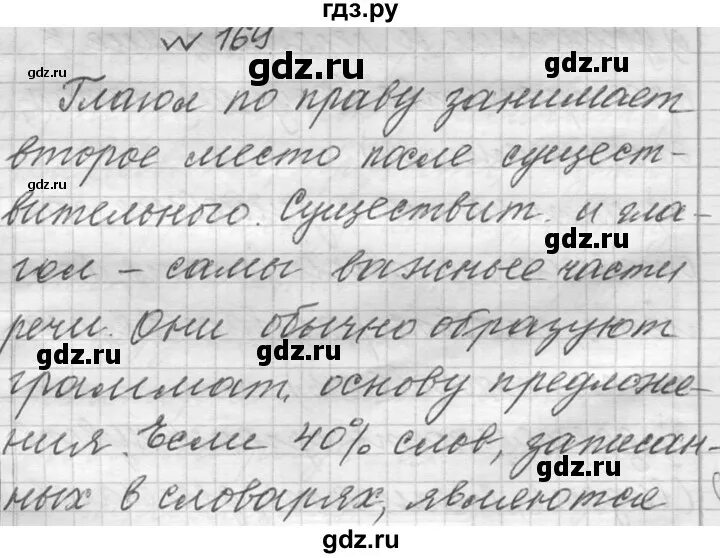 гдз.ру
№ 169
Глагол по праву занимает
второе место после сущест-
вительного. Существит. и гла-
гол – самы важные части
речи. Они обычно образуют
граммат. основу предложе-
ния. Если 40% слов, записан-
ных в словарях, являются
gdz.ru
gdz.ru
gdz.ru
gdz.ru
gdz.ru
gdz.ru
gdz.ru
gdz.ru
gdz.ru
gdz.ru
gdz.ru